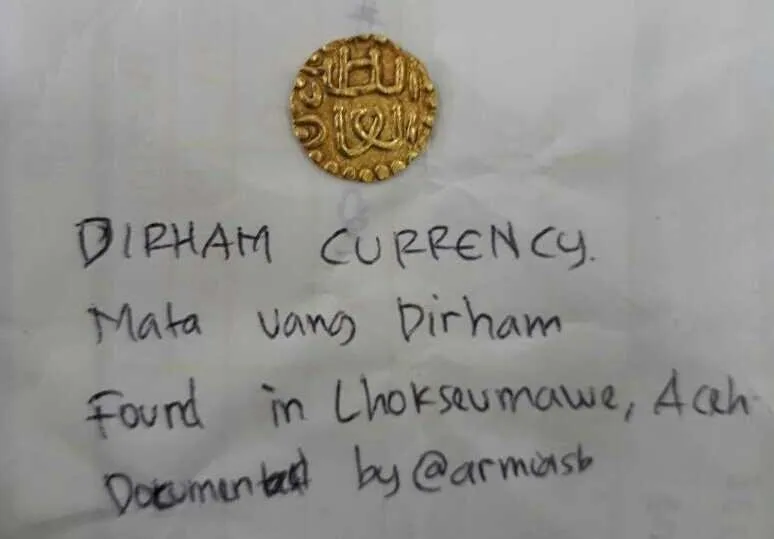 السلطان
العادل
DIRHAM CURRENCY.
Mata uang Dirham
Found in Lhokseumawe, Aceh
Documented by @armiasb